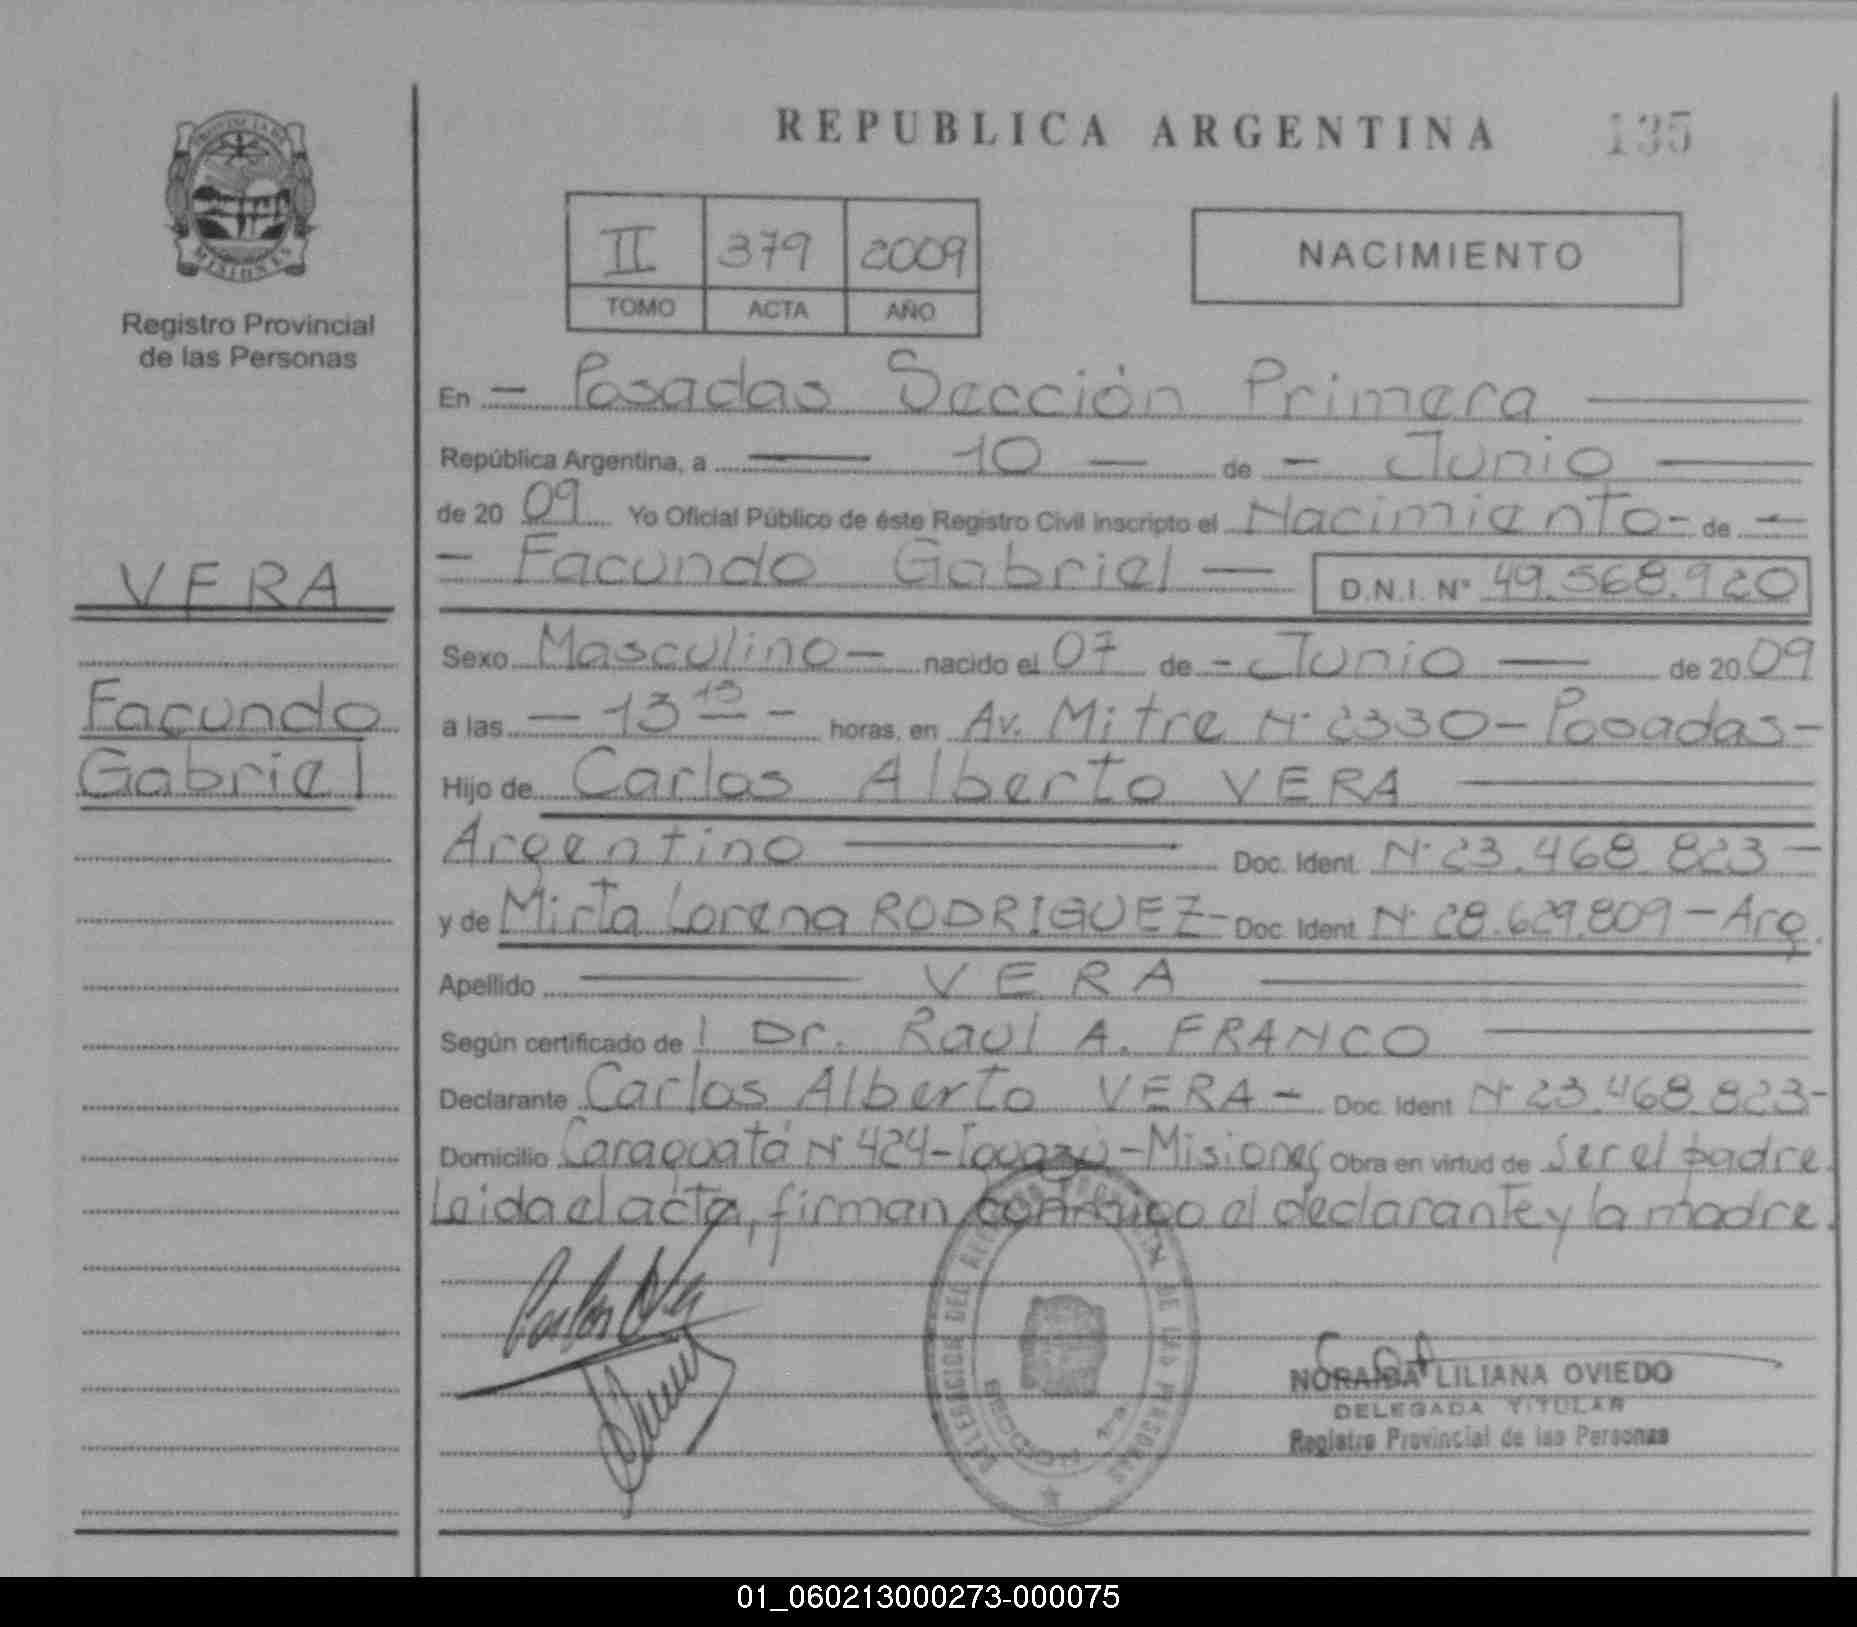 REPUBLICA ARGENTINA 135
PROVINCIA DE
MISIONES
Registro Provincial
de las Personas
II 379 2009
TOMO ACTA AÑO
NACIMIENTO
En - Posadas Sección Primera
República Argentina, a 10 - de - Junio
de 20 09 Yo Oficial Público de éste Registro Civil inscripto el Nacimiento - de -
- Facundo Gabriel - D.N.I. N° 49.568.920
VERA
Facundo
Gabriel
Sexo Masculino - nacido el 07 de - Junio - de 20 09
a las - 13 15 - horas, en Av. Mitre N° 2330 - Posadas -
Hijo de Carlos Alberto VERA
Argentino Doc. Ident. N° 23.468.823 -
y de Mirta Lorena RODRIGUEZ - Doc. Ident. N° 28.629.809 - Arg.
Apellido VERA
Según certificado de l Dr. Raul A. FRANCO
Declarante Carlos Alberto VERA - Doc. Ident N° 23.468.823 -
Domicilio Caraguatá N° 424 - Iguazú - Misiones Obra en virtud de Ser el padre.
Leida el acta, firman conmigo el declarante y la madre.
Carlos Vera
DE LAS PERSONAS
SECCION 1ra
NORAIDA LILIANA OVIEDO
DELEGADA TITULAR
Registro Provincial de las Personas
01_060213000273-000075